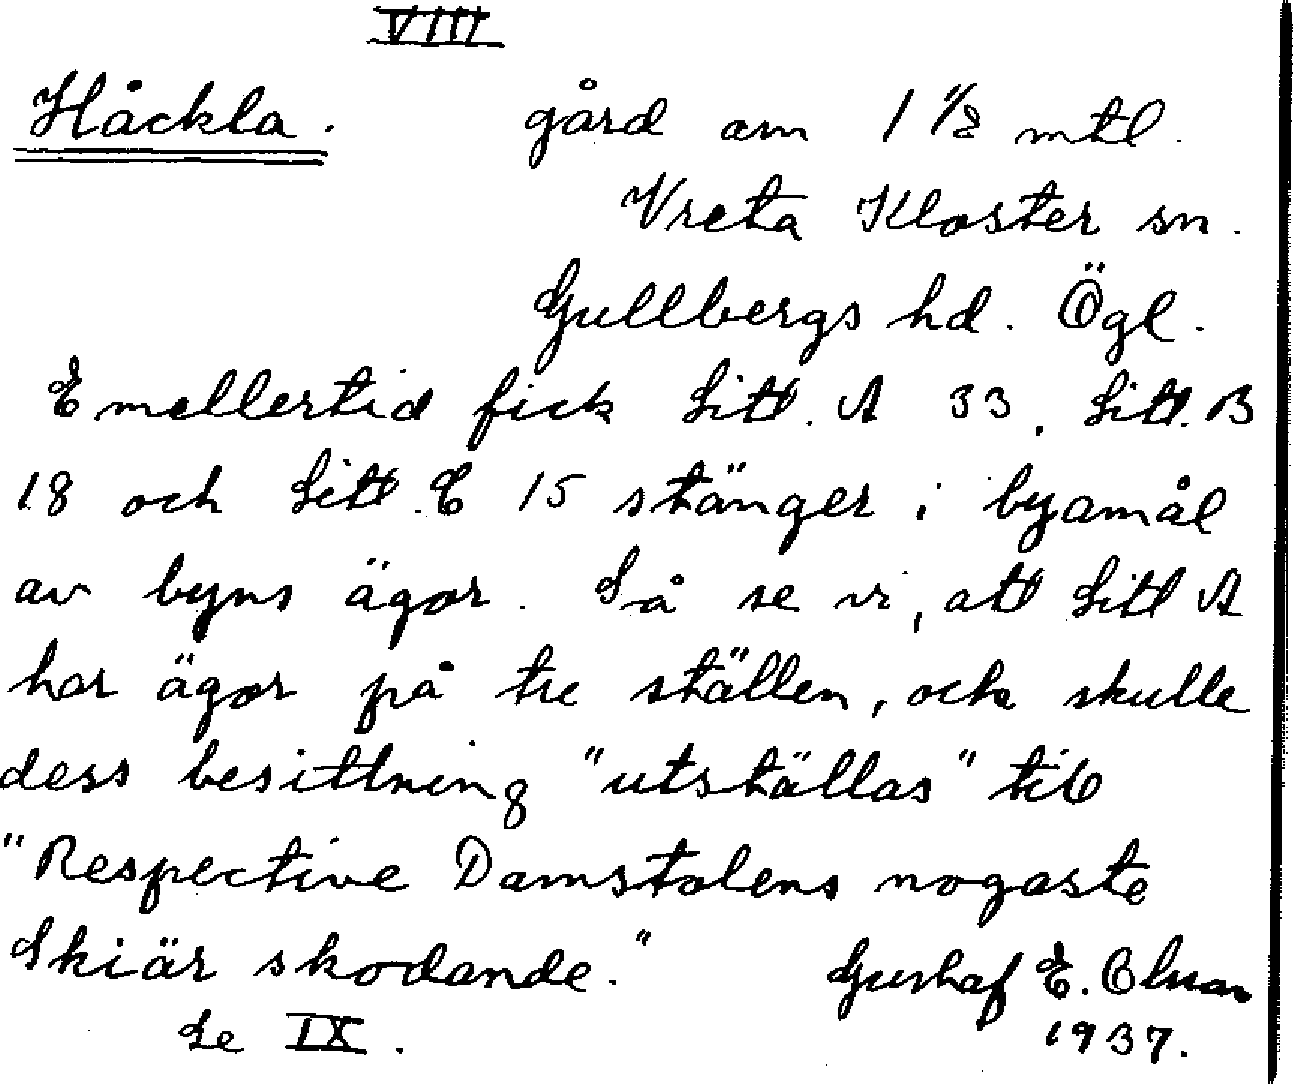 VIII
Håckla. gård om 1 1/2 mtl.
Vreta Kloster sn.
Gullbergs hd. Ögl.
Emellertid fick Litt. A 33, Litt. B
18 och Litt. C 15 stänger i byamål
av byns ägor. Så se vi, att Litt A
har ägor på tre ställen, och skulle
dess besittning "utställas" till
"Respective Domstolens nogaste
Skiär skodande."
Gustaf E. Olsson
Se IX. 1937.